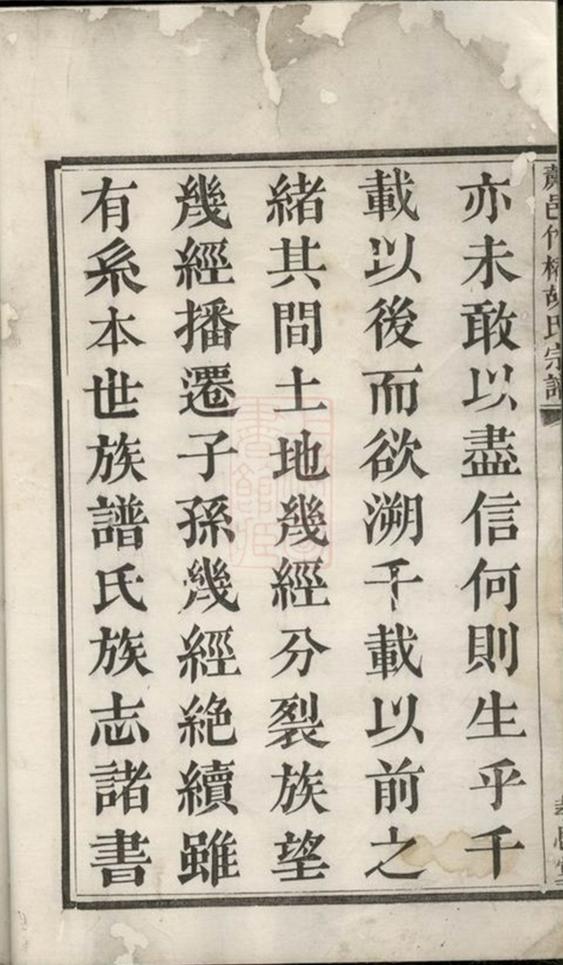 亦未敢以盡信何則生乎千
載以後而欲溯千載以前之
緒其間土地幾經分裂族望
幾經播遷子孫幾經絶續雖
有系本世族譜氏族志諸書